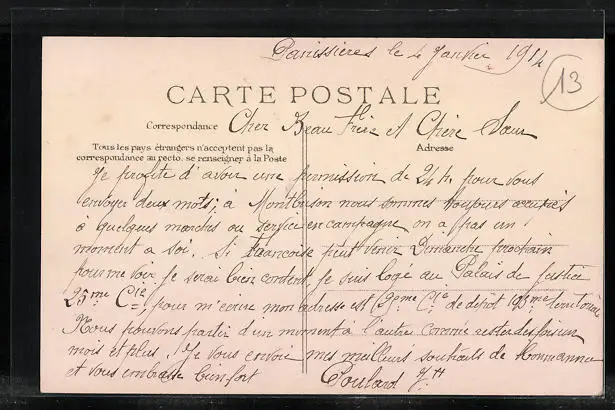 Panissières le 4 Janvier 1914
13
CARTE POSTALE
Correspondance
Cher Beau Frère et Chère Sœur
Tous les pays étrangers n'acceptent pas la
correspondance au recto. se renseigner à la Poste
Adresse
Je profite d'avoir une permission de 24 h pour vous
envoyer deux mots, à Montbrison nous sommes toujours occupés
à quelques marches ou service en campagne on a pas un
moment a soi. Si Françoise peut venir Dimanche prochain
pour me voir je serai bien content, je suis logé au Palais de justice
25me Cie, pour m'écrire mon adresse est Cie de dépôt territoriale
Nous pouvons partir d'un moment à l'autre comme rester des fois un
mois et plus. Je vous envoie mes meilleurs souhaits de
et vous embrasse bien fort